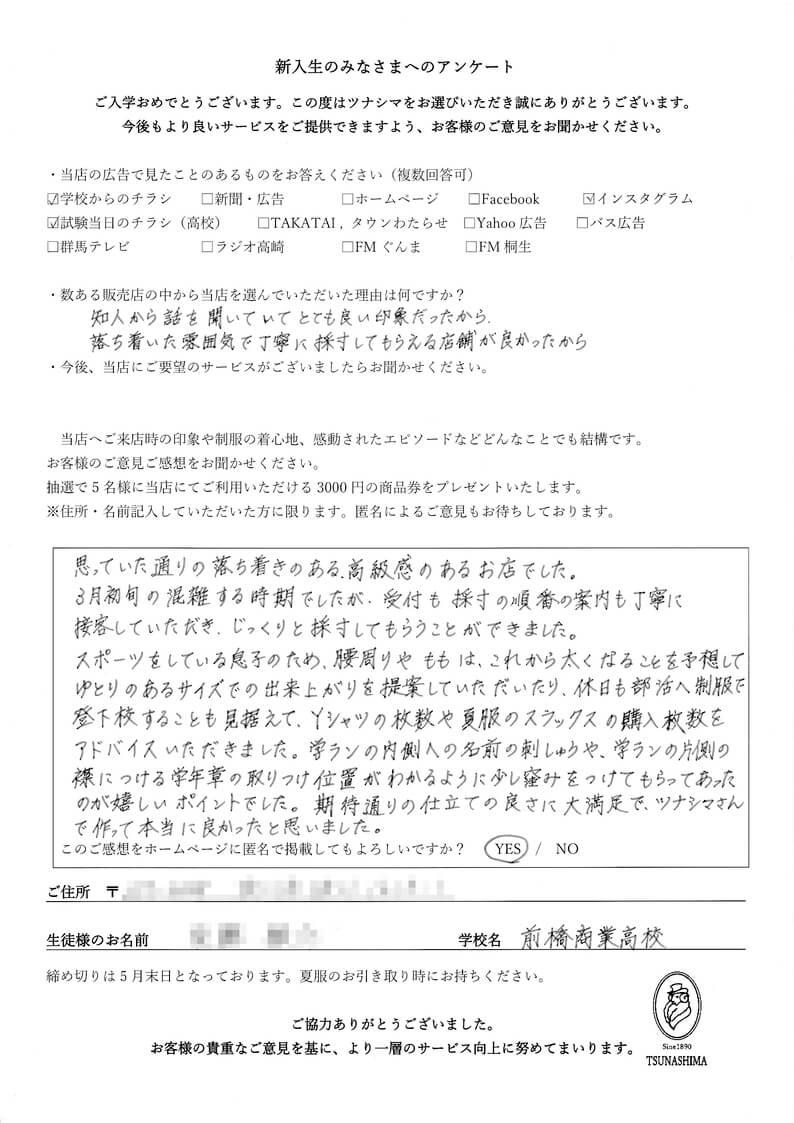 新入生のみなさまへのアンケート
ご入学おめでとうございます。この度はツナシマをお選びいただき誠にありがとうございます。
今後もより良いサービスをご提供できますよう、お客様のご意見をお聞かせください。
・当店の広告で見たことのあるものをお答えください（複数回答可）
☑学校からのチラシ □新聞・広告 □ホームページ □Facebook ☑インスタグラム
☑試験当日のチラシ（高校） □TAKATAI , タウンわたらせ □Yahoo 広告 □バス広告
□群馬テレビ □ラジオ高崎 □FM ぐんま □FM 桐生
・数ある販売店の中から当店を選んでいただいた理由は何ですか？
知人から話を聞いていてとても良い印象だったから.
落ち着いた雰囲気で丁寧に採寸してもらえる店舗が良かったから
・今後、当店にご要望のサービスがございましたらお聞かせください。
当店へご来店時の印象や制服の着心地、感動されたエピソードなどどんなことでも結構です。
お客様のご意見ご感想をお聞かせください。
抽選で 5 名様に当店にてご利用いただける 3000 円の商品券をプレゼントいたします。
※住所・名前記入していただいた方に限ります。匿名によるご意見もお待ちしております。
思っていた通りの落ち着きのある、高級感のあるお店でした。
3月初旬の混雑する時期でしたが、受付も採寸の順番の案内も丁寧に
接客していただき、じっくりと採寸してもらうことができました。
スポーツをしている息子のため、腰周りやももは、これから太くなることを予想して
ゆとりのあるサイズでの出来上がりを提案していただいたり、休日も部活へ制服で
登下校することも見据えて、Yシャツの枚数や夏服のスラックスの購入枚数を
アドバイスいただきました。学ランの内側への名前の刺しゅうや、学ランの片側の
襟につける学年章の取りつけ位置がわかるように少し窪みをつけてもらってあった
のが嬉しいポイントでした。期待通りの仕立ての良さに大満足で、ツナシマさん
で作って本当に良かったと思いました。
このご感想をホームページに匿名で掲載してもよろしいですか？ YES / NO
ご住所 〒
生徒様のお名前 学校名 前橋商業高校
締め切りは 5 月末日となっております。夏服のお引き取り時にお持ちください。
ご協力ありがとうございました。
お客様の貴重なご意見を基に、より一層のサービス向上に努めてまいります。
Sinc1890
TSUNASHIMA